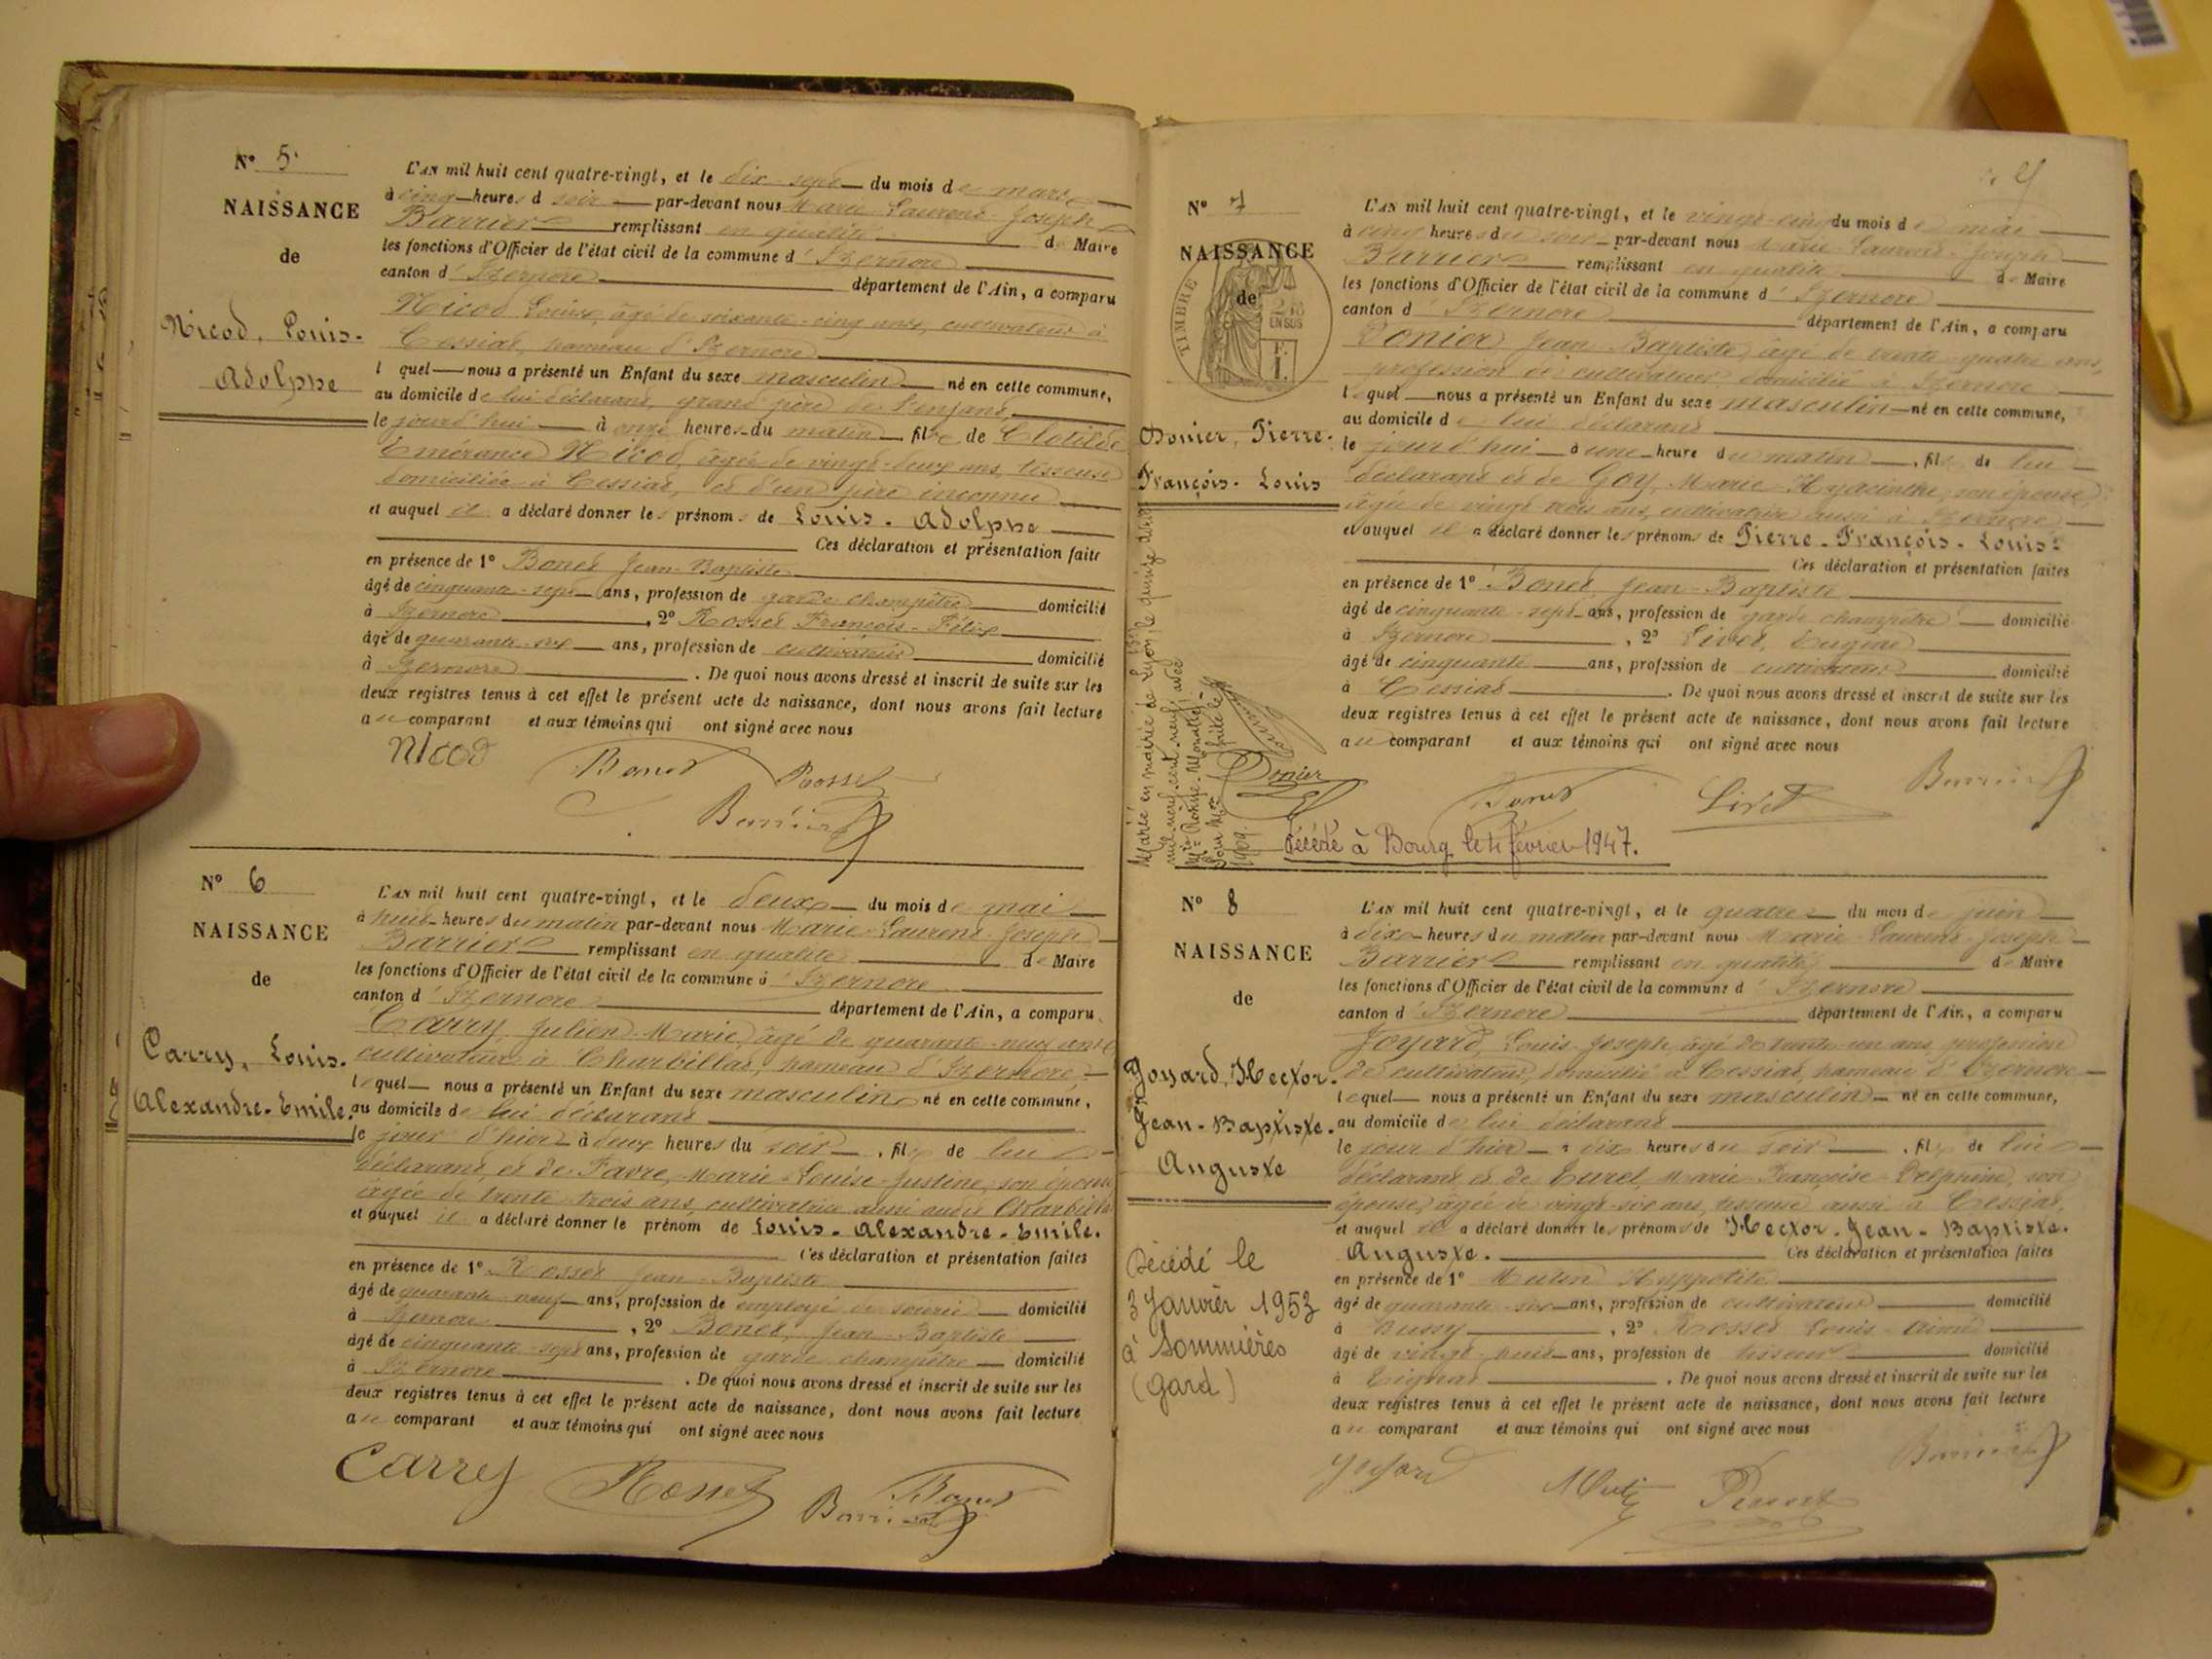 N° 5.
NAISSANCE
de
Nicod, Louis-
Adolphe
L'AN mil huit cent quatre-vingt, et le dix-sept du mois de mars
à cinq heures d soir par-devant nous Marie Laurent Joseph
Barrier remplissant en qualité de Maire
les fonctions d'Officier de l'état civil de la commune d'Izernore
canton d'Izernore département de l'Ain, a comparu
Nicod Louis, âgé de soixante-cinq ans, cultivateur à
Cessiat, hameau d'Izernore
l quel nous a présenté un Enfant du sexe masculin né en cette commune,
au domicile de lui déclarant, grand père de l'enfant
le jourd'hui à onze heures du matin fils de Clotilde
Emérance Nicod, âgée de vingt-deux ans, tisseuse
domiciliée à Cessiat, et d'un père inconnu
et auquel il a déclaré donner les prénoms de Louis-Adolphe
Ces déclaration et présentation faite
en présence de 1° Bonet Jean-Baptiste
âgé de cinquante-sept ans, profession de garde champêtre domicilié
à Izernore, 2° Rosset François-Félix
âgé de quarante-six ans, profession de cultivateur domicilié
à Izernore. De quoi nous avons dressé et inscrit de suite sur les
deux registres tenus à cet effet le présent acte de naissance, dont nous avons fait lecture
au comparant et aux témoins qui ont signé avec nous
Nicod Bonet Rosset
Barrier
N° 6
NAISSANCE
de
Carry, Louis-
Alexandre-Emile.
L'AN mil huit cent quatre-vingt, et le deux du mois de mai
à huit heures du matin par-devant nous Marie-Laurent-Joseph
Barrier remplissant en qualité de Maire
les fonctions d'Officier de l'état civil de la commune d'Izernore
canton d'Izernore département de l'Ain, a comparu
Carry, Julien-Marie, âgé de quarante-neuf ans
cultivateur à Charbillat, hameau d'Izernore,
lequel nous a présenté un Enfant du sexe masculin né en cette commune,
au domicile de lui déclarant
le jour d'hier à deux heures du soir, fils de lui
déclarant, et de Favre, Marie-Louise-Justine, son épouse
âgée de trente-trois ans, cultivatrice aussi audit Charbillat
et auquel il a déclaré donner le prénom de Louis-Alexandre-Emile.
Ces déclaration et présentation faites
en présence de 1° Rosset Jean-Baptiste
âgé de quarante-neuf ans, profession de employé de scierie domicilié
à Izernore, 2° Bonet, Jean-Baptiste
âgé de cinquante-sept ans, profession de garde champêtre domicilié
à Izernore. De quoi nous avons dressé et inscrit de suite sur les
deux registres tenus à cet effet le présent acte de naissance, dont nous avons fait lecture
au comparant et aux témoins qui ont signé avec nous
Carry Rosset Bonet
Barrier
N° 7
NAISSANCE
de
TIMBRE
EN SUS
Donier, Pierre-
François-Louis
Marié en mairie de Lyon, le quinze
mil neuf cent neuf avec
1909.
L'AN mil huit cent quatre-vingt, et le vingt-cinq du mois de mai
à cinq heures du soir par-devant nous Marie-Laurent-Joseph
Barrier remplissant en qualité de Maire
les fonctions d'Officier de l'état civil de la commune d'Izernore
canton d'Izernore département de l'Ain, a comparu
Donier, Jean-Baptiste, âgé de trente-quatre ans,
profession de cultivateur, domicilié à Izernore
lequel nous a présenté un Enfant du sexe masculin né en cette commune,
au domicile de lui déclarant
le jourd'hui à une heure du matin, fils de lui
déclarant et de Goy, Marie-Hyacinthe, son épouse,
âgée de vingt-trois ans, cultivatrice aussi à Izernore
et auquel il a déclaré donner les prénoms de Pierre-François-Louis.
Ces déclaration et présentation faites
en présence de 1° Bonet, Jean-Baptiste
âgé de cinquante-sept ans, profession de garde champêtre domicilié
à Izernore, 2° Livet, Eugène
âgé de cinquante ans, profession de cultivateur domicilié
à Cessiat. De quoi nous avons dressé et inscrit de suite sur les
deux registres tenus à cet effet le présent acte de naissance, dont nous avons fait lecture
au comparant et aux témoins qui ont signé avec nous
Donier Bonet Livet Barrier
Décédé à Bourg le 4 février 1947.
N° 8
NAISSANCE
de
Joyard, Hector-
Jean-Baptiste-
Auguste
Décédé le
3 Janvier 1953
à Sommières
(Gard)
L'AN mil huit cent quatre-vingt, et le quatre du mois de juin
à dix heures du matin par-devant nous Marie-Laurent-Joseph
Barrier remplissant en qualité de Maire
les fonctions d'Officier de l'état civil de la commune d'Izernore
canton d'Izernore département de l'Ain, a comparu
Joyard, Louis-Joseph, âgé de trente-un ans, profession
de cultivateur, domicilié à Cessiat, hameau d'Izernore
lequel nous a présenté un Enfant du sexe masculin né en cette commune,
au domicile de lui déclarant
le jour d'hier à dix heures du soir, fils de lui
déclarant, et de Eurel, Marie Françoise-Delphine, son
épouse, âgée de vingt-six ans, tisseuse aussi à Cessiat,
et auquel il a déclaré donner les prénoms de Hector-Jean-Baptiste-
Auguste. Ces déclaration et présentation faites
en présence de 1° Mutin Hyppolite
âgé de quarante-six ans, profession de cultivateur domicilié
à Bussy, 2° Rosset Louis-Aimé
âgé de vingt-huit ans, profession de tisseur domicilié
à Tignat. De quoi nous avons dressé et inscrit de suite sur les
deux registres tenus à cet effet le présent acte de naissance, dont nous avons fait lecture
au comparant et aux témoins qui ont signé avec nous
Joyard Mutin Barrier